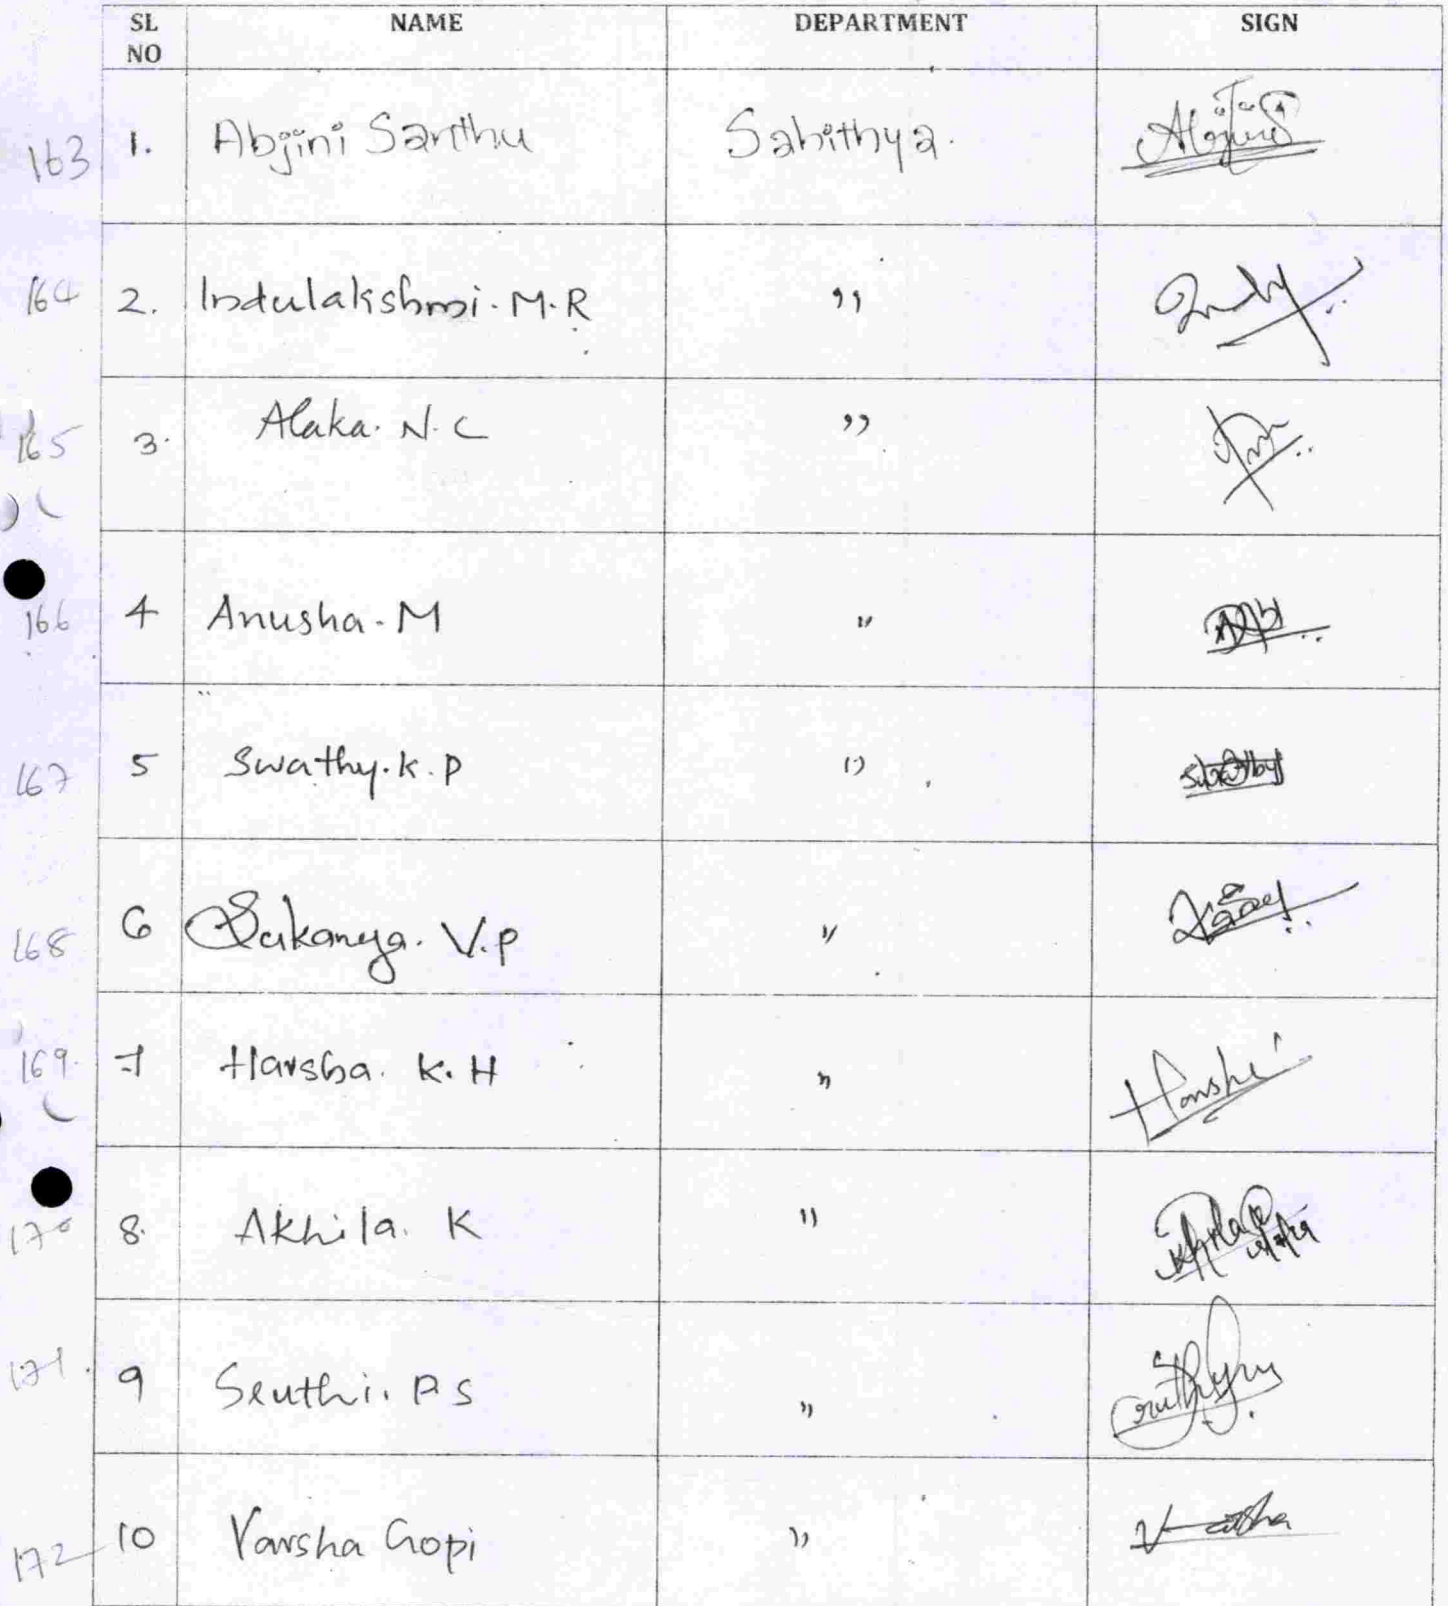 SL NO NAME DEPARTMENT SIGN
163 1. Abjini Santhu Sahithya.
164 2. Indulakshmi. M. R ,,
165 3. Alaka. N. C ,,
166 4 Anusha. M ,,
167 5 Swathy. K. P ,, Swathy
168 6 Sukanya. V. P ,,
169. 7 Harsha. K. H ,, Harsha
170 8. Akhila. K ,,
171. 9 Sruthi. P S ,,
172 10 Varsha Gopi ,,